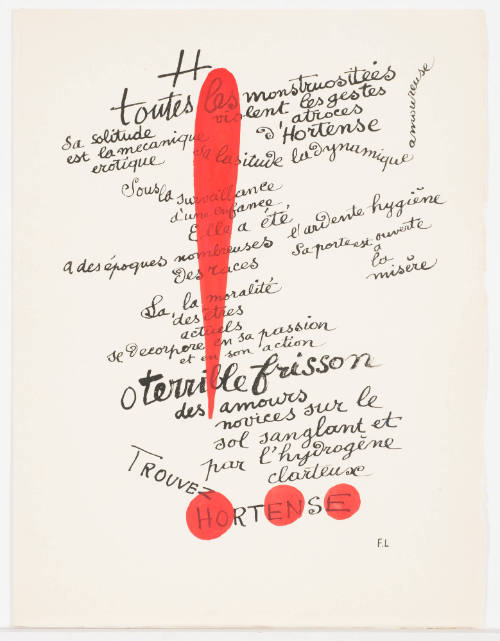 H
toutes les monstruositées
violent les gestes
atroces
d'Hortense
Sa solitude
est la mecanique
erotique
Sa lasitude la dynamique
amoureuse
Sous la surveillance
d'une enfance
Elle a été,
a des époques nombreuses
l'ardente hygiène
Des races
Sa porte est ouverte
a
la
misère
La, la moralité
des êtres
actuels
se Decorpore en sa passion
et en son action
O terrible frisson
des amours
novices sur le
sol sanglant et
par l'hydrogène
clarteux
TROUVEZ
HORTENSE
F.L